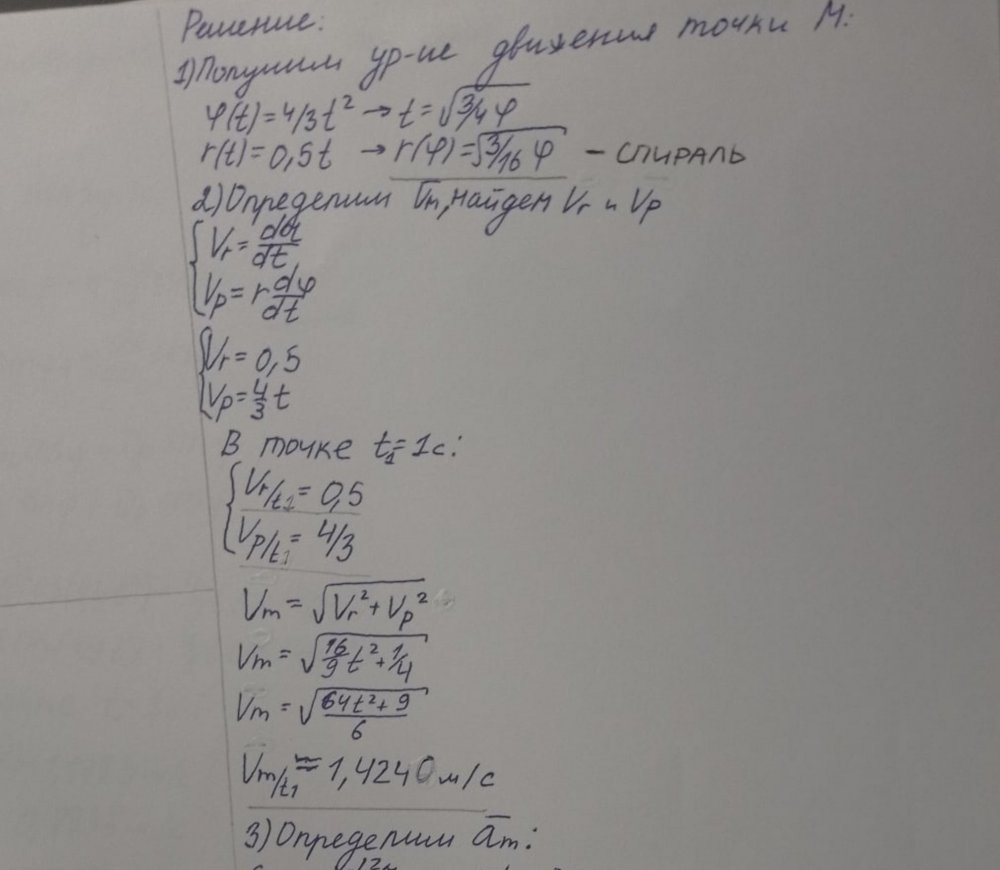 Решение:
1) Получим ур-ие движения точки М:
φ(t)=4/3t² → t=√3/4φ
r(t)=0,5t → r(φ)=√3/16φ – СПИРАЛЬ
2) Определим V̅m, найдем Vr и Vp
{Vr=dr/dt
{Vp=r dφ/dt
{Vr=0,5
{Vp=4/3 t
В точке t₁=1с:
{Vr/t₁=0,5
{Vp/t₁=4/3
Vm=√Vr²+Vp²
Vm=√16/9t²+1/4
Vm=√64t²+9/6
Vm/t₁≈1,4240 м/с
3) Определим a̅m: